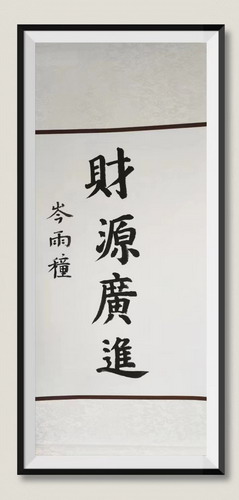 財源廣進
岑雨穜